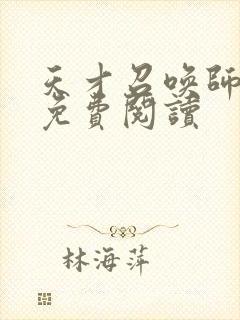 天才召唤師
免費閱讀
林海萍